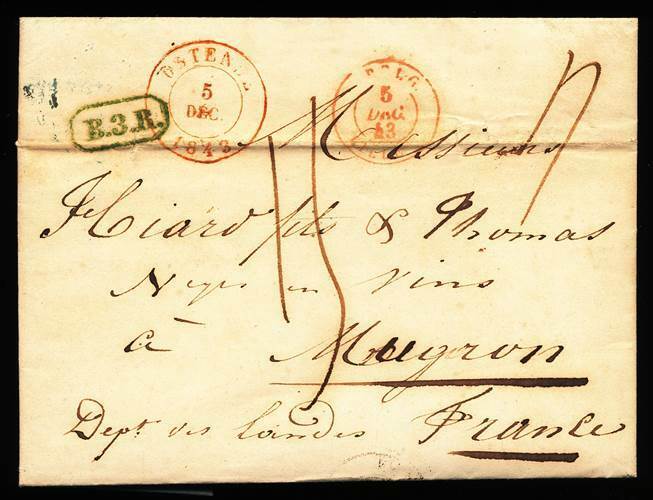 OSTENDE
5
DEC.
1843
BELG.
5
DEC.
43
B.3.R.
15
Messieurs
Hiard fils & Thomas
Negts en vins
à Mugron
Dept des Landes France